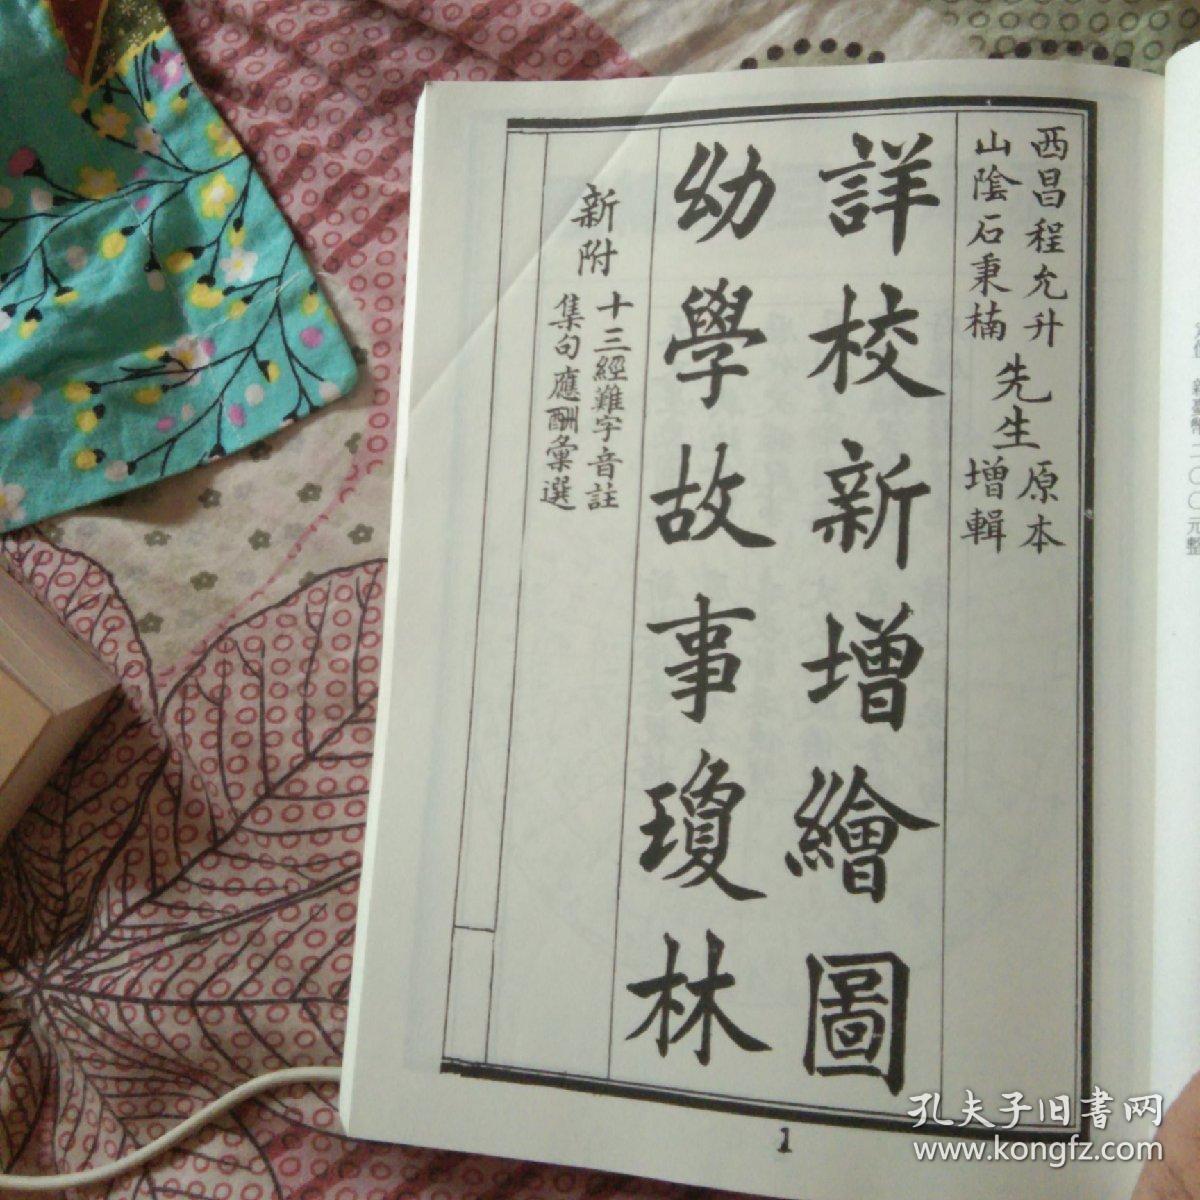 西昌程允升
山陰石秉楠
先生
原本
增輯
詳校新增繪圖
幼學故事瓊林
新附
十三經難字音註
集句應酬彙選
1
二〇〇元整
孔夫子旧書网
www.kongfz.com